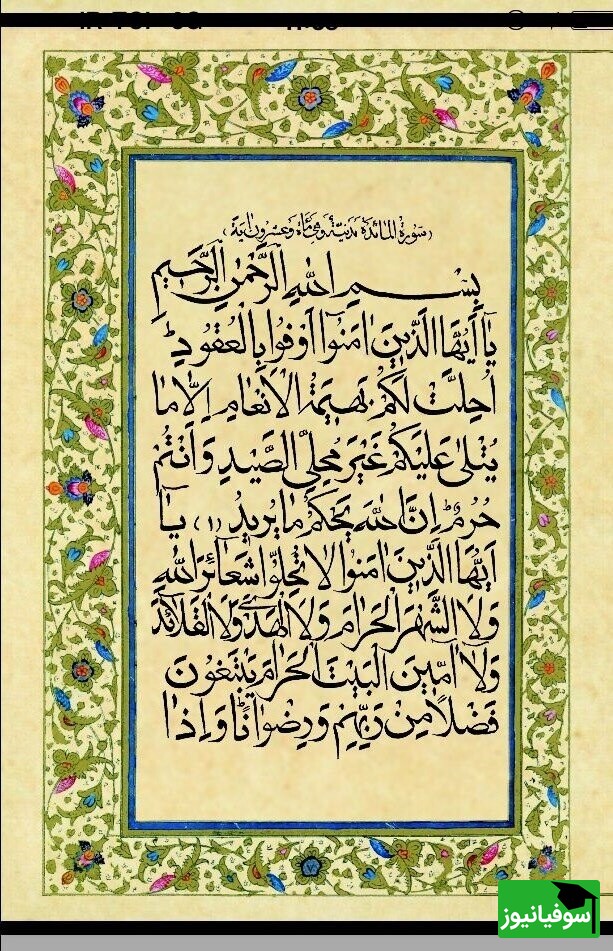 (سورة المائدة مدنية وهي مائة وعشرون اية)
بِسْمِ اللّٰهِ الرَّحْمٰنِ الرَّحِيمِ
يَآ اَيُّهَا الَّذِينَ اٰمَنُوٓا اَوْفُوا بِالْعُقُودِ ط
اُحِلَّتْ لَكُمْ بَهِيمَةُ الْاَنْعَامِ اِلَّا مَا
يُتْلٰى عَلَيْكُمْ غَيْرَ مُحِلِّي الصَّيْدِ وَاَنْتُمْ
حُرُمٌ ط اِنَّ اللّٰهَ يَحْكُمُ مَا يُرِيدُ (١) يَآ
اَيُّهَا الَّذِينَ اٰمَنُوا لَا تُحِلُّوا شَعَآئِرَ اللّٰهِ
وَلَا الشَّهْرَ الْحَرَامَ وَلَا الْهَدْيَ وَلَا الْقَلَآئِدَ
وَلَآ اٰمِّينَ الْبَيْتَ الْحَرَامَ يَبْتَغُونَ
فَضْلًا مِنْ رَبِّهِمْ وَرِضْوَانًا ط وَاِذَا
سوفیانیوز